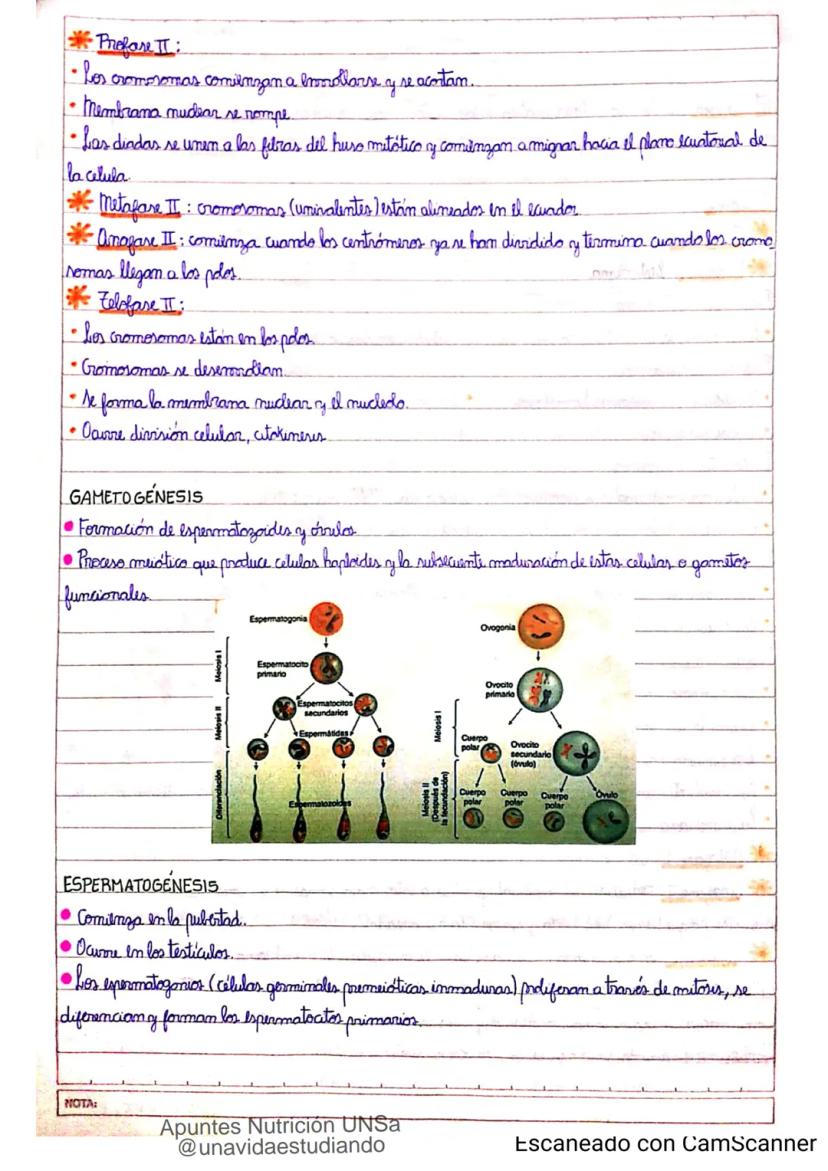 Profase II:
· Los cromosomas comienzan a enrrollarse y se acortan.
· Membrana nuclear se rompe.
· Las diadas se unen a las fibras del huso mitótico y comienzan a migrar hacia el plano ecuatorial de
la celula.
Metafase II: cromosomas (univalentes) están alineados en el ecuador
Anafase II: comienza cuando los centrómeros ya se han dividido y termina cuando los cromo
somas llegan a los polos.
Telofase II:
· Los cromosomas están en los polos.
· Cromosomas se desenrollan.
· Se forma la membrana nuclear y el nucleolo.
· Ocurre división celular, citokinesis
GAMETOGÉNESIS
● Formación de espermatozoides y óvulos
● Proceso meiótico que produce celulas haploides y la subsecuente maduración de estas celulas o gametos
funcionales.
Espermatogonia
Ovogonia
Meiosis I
Espermatocito
primario
Ovocito
primario
Meiosis II
Espermatocitos
secundarios
Meiosis I
Espermátidas
Cuerpo
polar
Ovocito
secundario
(óvulo)
Diferenciación
Espermatozoides
Meiosis II
(Después de
la fecundación)
Cuerpo
polar
Cuerpo
polar
Cuerpo
polar
Óvulo
ESPERMATOGÉNESIS
● Comienza en la pubertad.
● Ocurre en los testículos.
● Los espermatogonios (células germinales premeióticas inmaduras) proliferan a través de mitosis, se
diferencian y forman los espermatocitos primarios.
NOTA:
Apuntes Nutrición UNSa
@unavidaestudiando
Escaneado con CamScanner